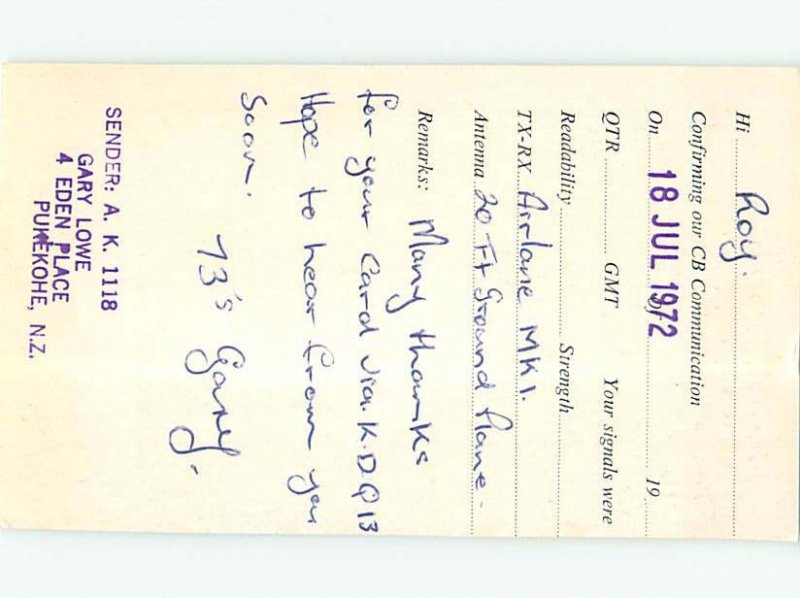 Hi Roy.
Confirming our CB Communication
On 18 JUL 1972 19
QTR GMT Your signals were
Readability Strength
TX-RX Airlane MK1.
Antenna 20 Ft Ground Plane.
Remarks: Many thanks
for your Card via. K.D.Q 13
Hope to hear from you
Soon.
73's Gary.
SENDER: A. K. 1118
GARY LOWE
4 EDEN PLACE
PUKEKOHE, N.Z.